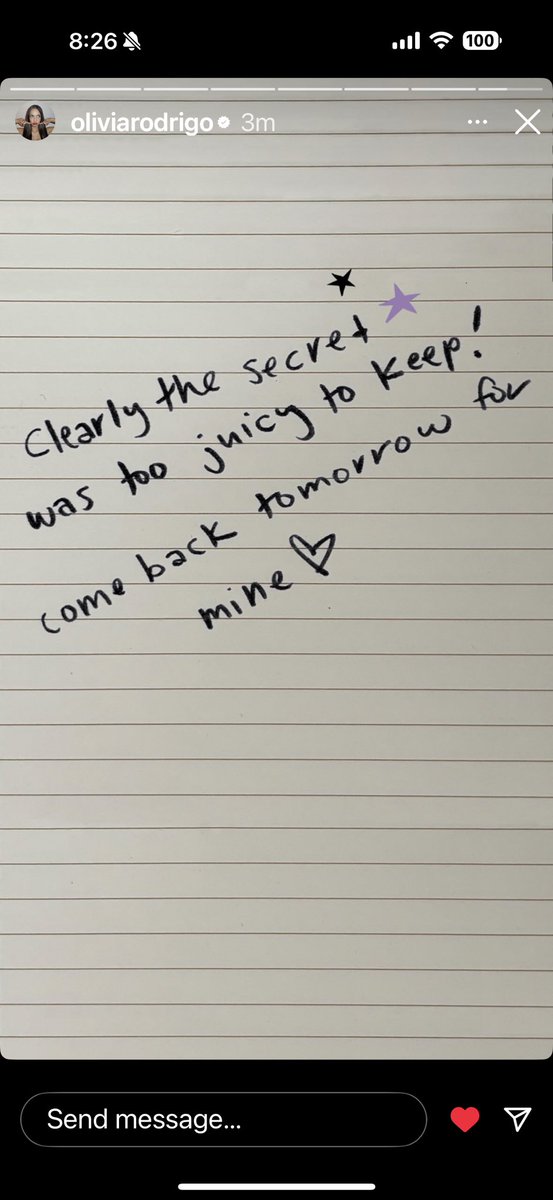 8:26
100
oliviarodrigo 3m
clearly the secret
was too juicy to keep!
come back tomorrow for
mine
Send message...